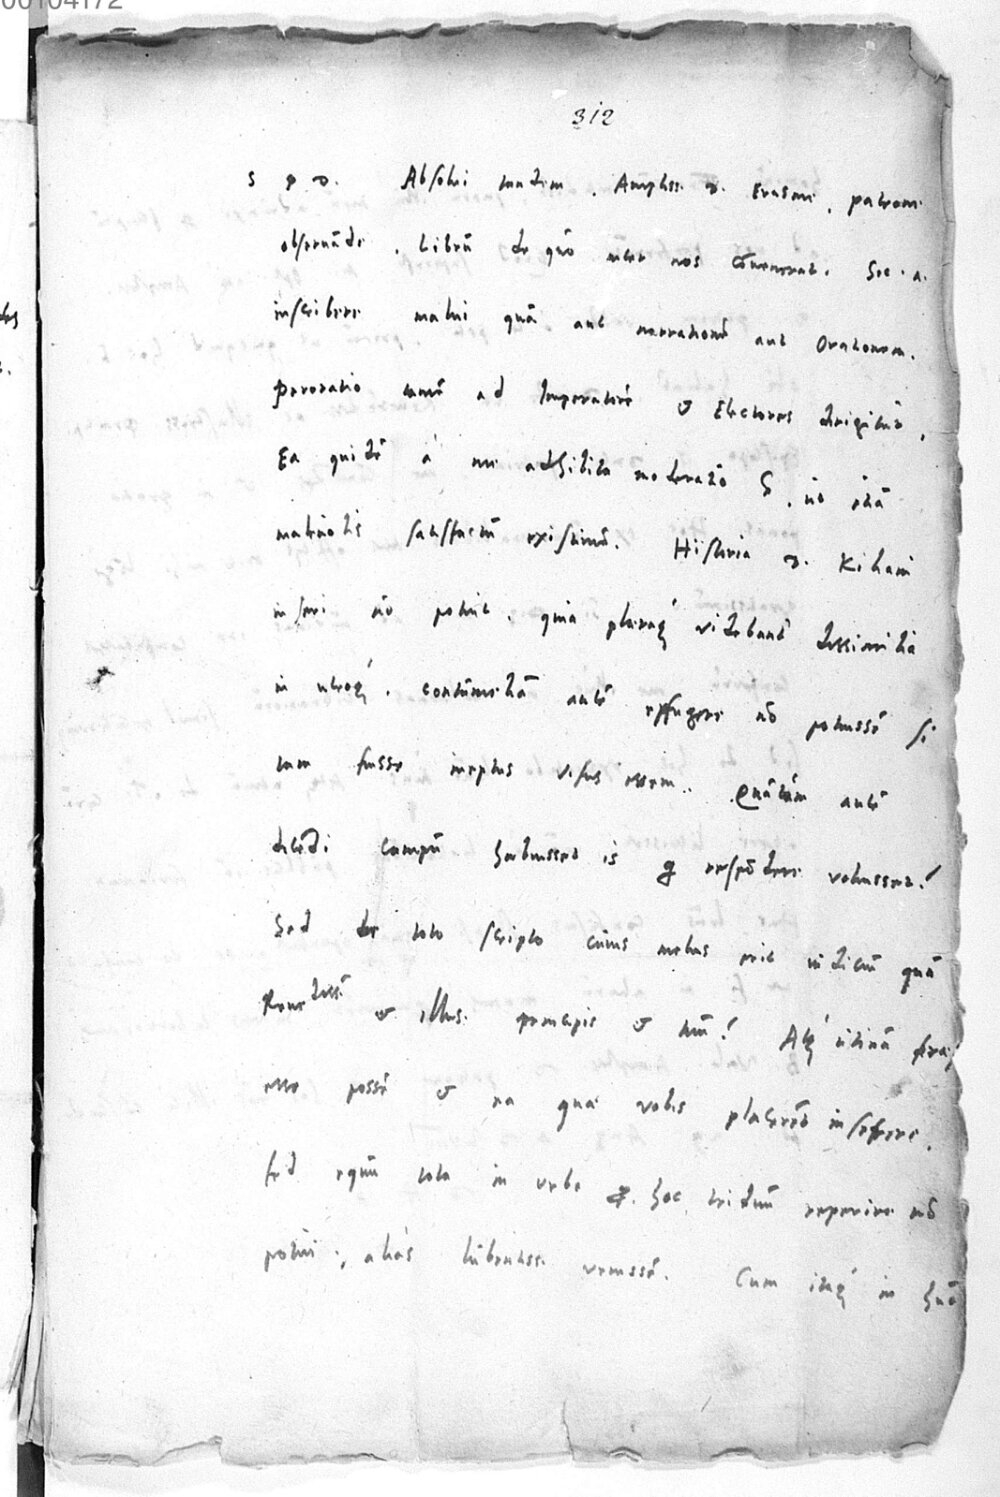 00104172
312
S P D. Absolui tandem, Ampliss. D. Erasme, patrone
obseruāde, librū de quo inter nos cōuenerat. hoc. a.
inscribere malui quā aut narrationē aut Orationem.
Peroratio tamē ad Imperatorē & Electores dirigitur,
Ea quidē à me adhibita moderatio, ut etiā
satisfactū existimē. Historia D. Kiliani
inseri nō potuit, quia pleraq́ videbant dissimilia
in utroq́. contumeliā autē effugere nō potuissē si
tam fuisse ineptus visus essem. Quātum autē
campū habuisset is q respōdere voluisset!
Sed de toto scripto cuius melius erit iudiciū quā
& illus. principis & tuū! Atq́ utinā
esse possē & ea quae vobis placerēt inserere,
sed equū tota in urbe hoc triduū reperire nō
potui, aliàs libentiss. venissē. Cum itaq́ in